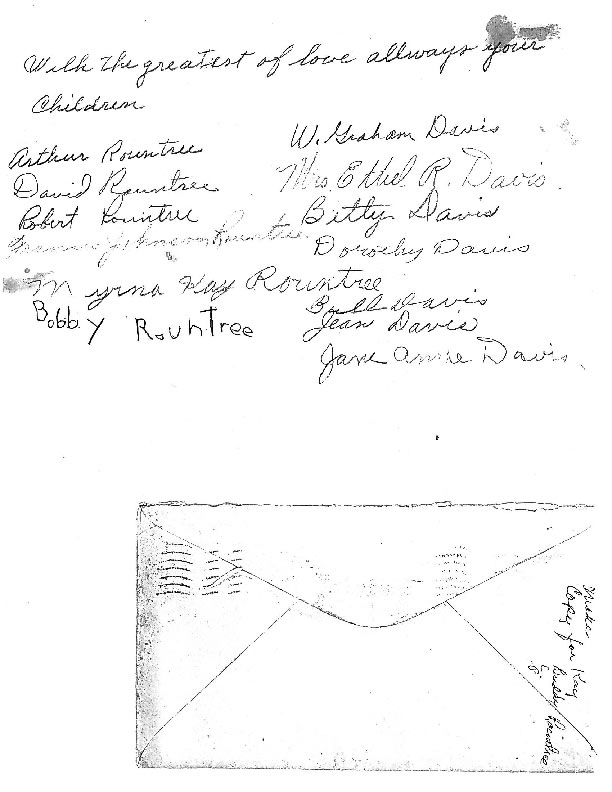 With the greatest of love allways your
Children
Arthur Rountree
David Rountree
Robert Rountree
Johnson Rountree
Myrna Kay Rountree
Bobby Rountree
W. Graham Davis
Mrs. Ethel R. Davis.
Betty Davis
Dorothy Davis
Bill Davis
Jean Davis
Jane Anne Davis.
Make
Copy for Kay
Buddy Rountree